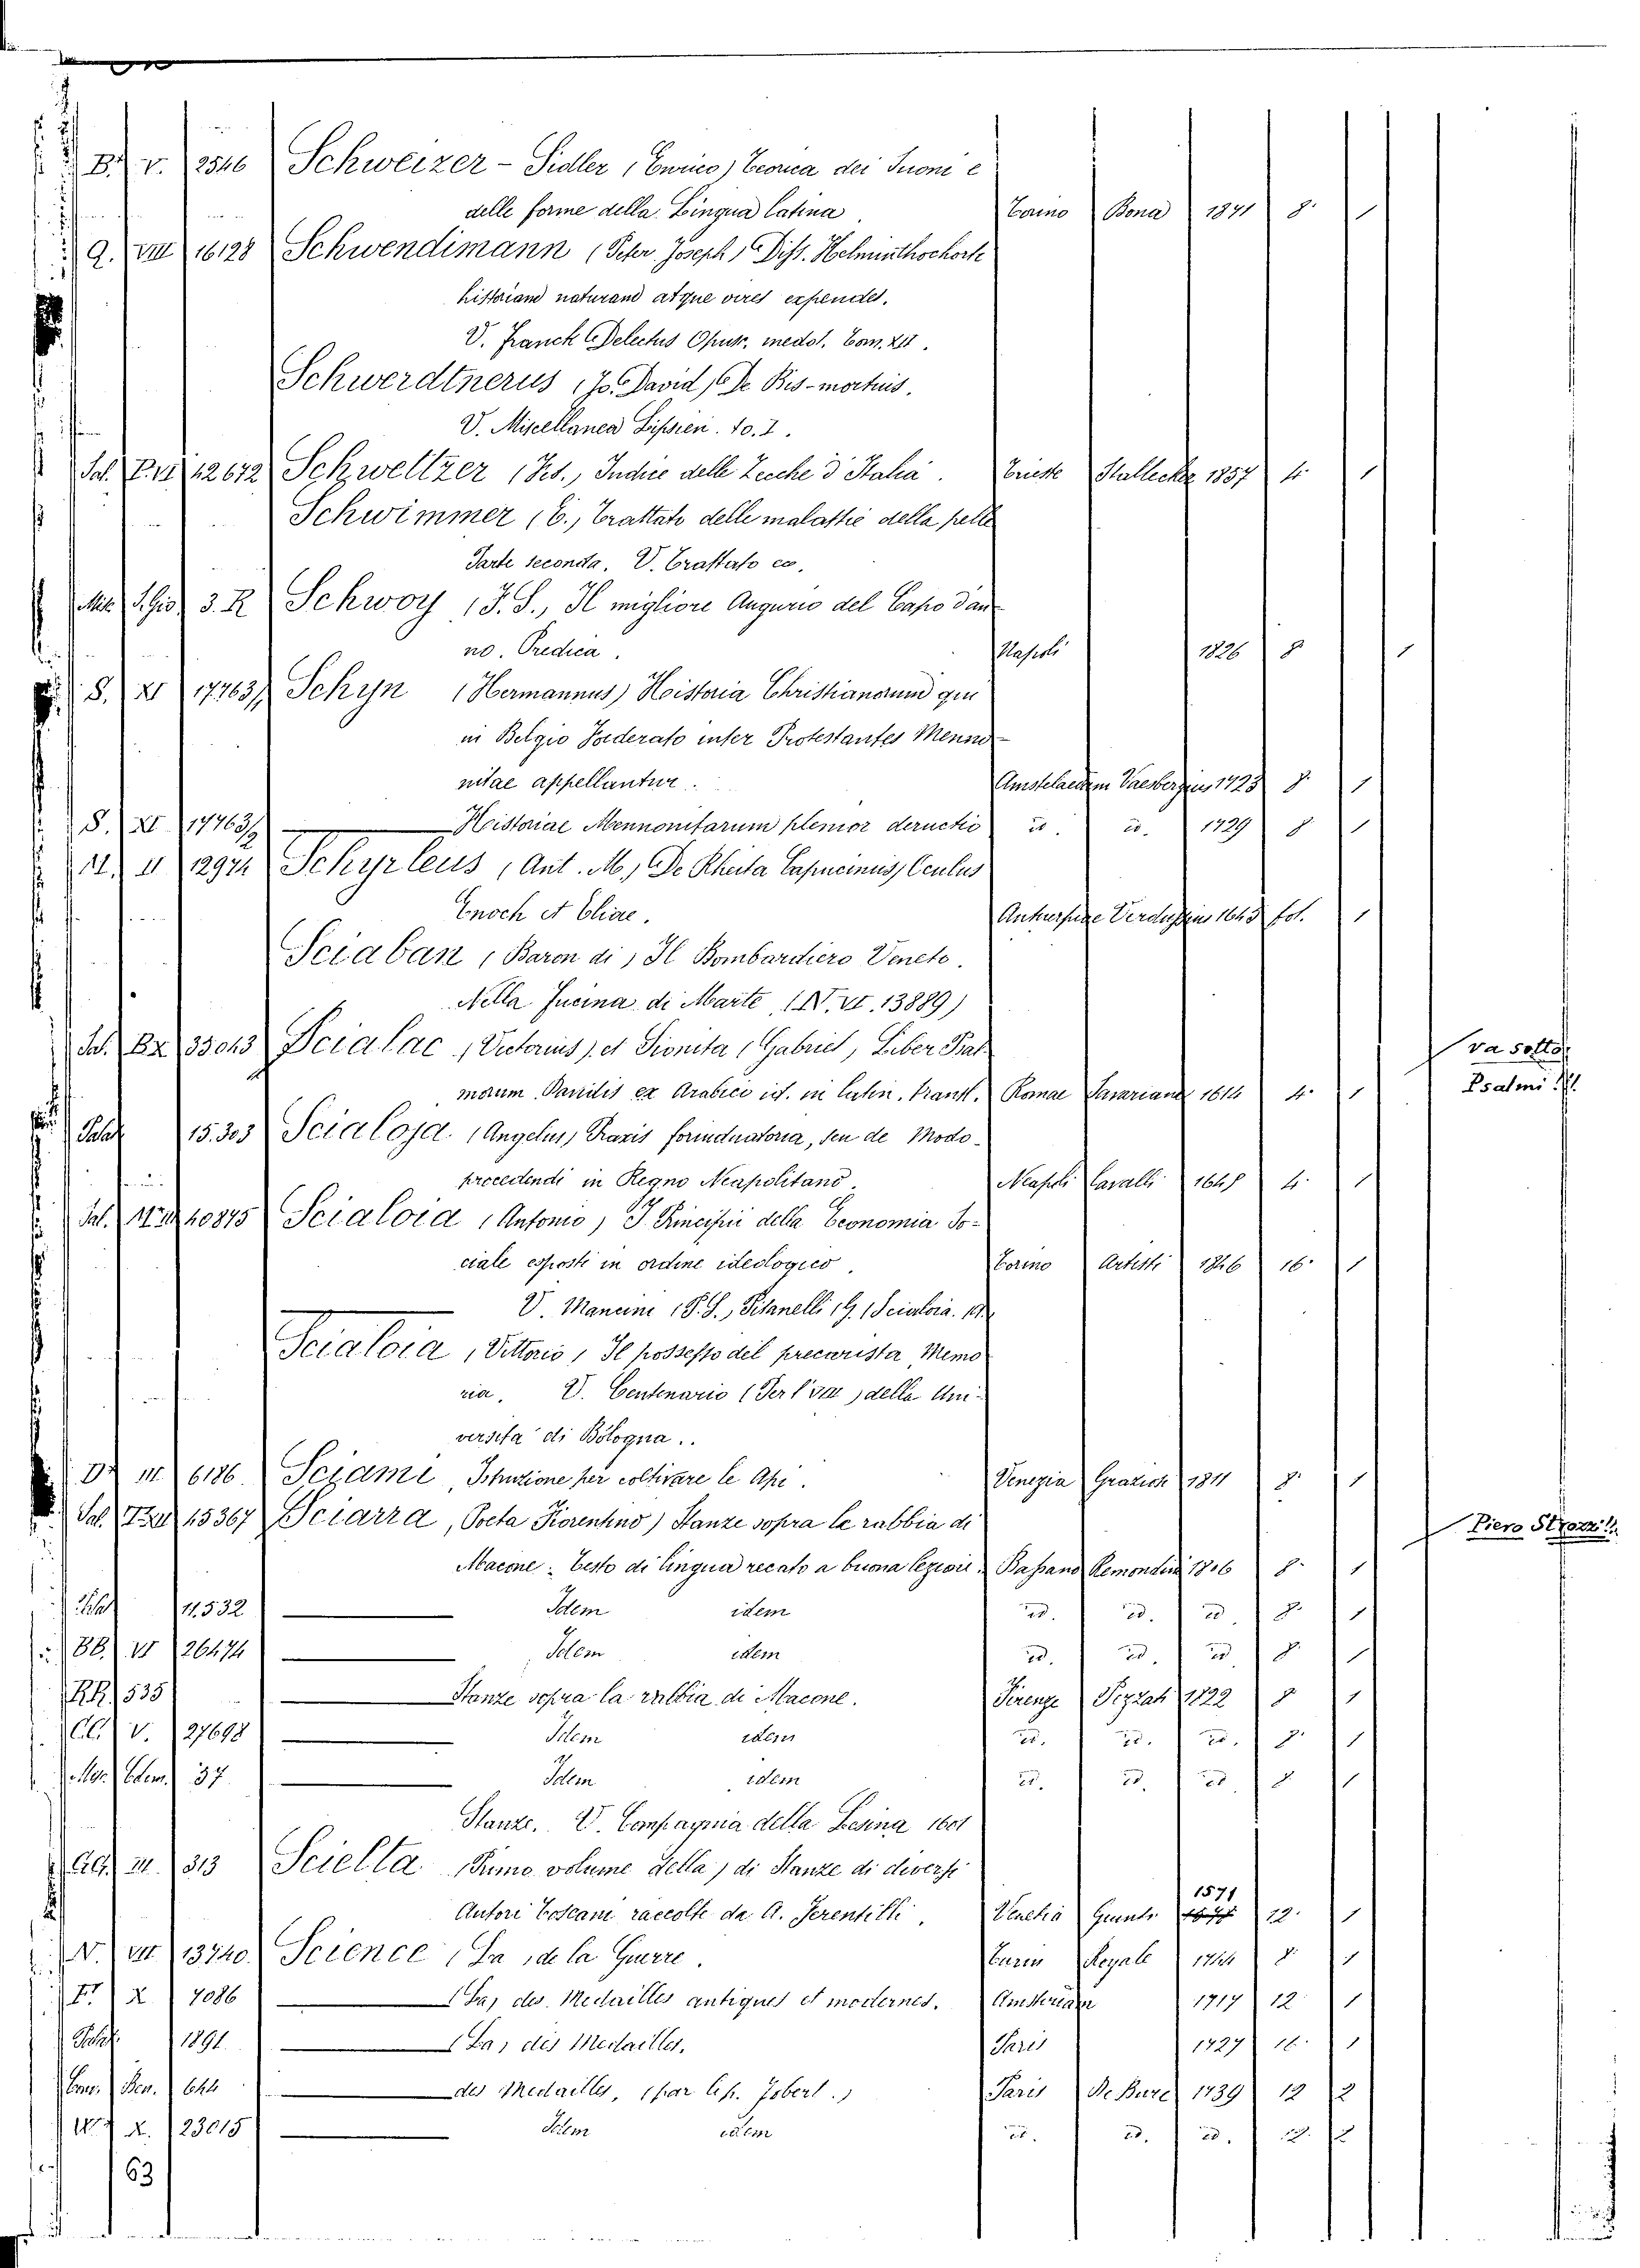 B. V. 2546 Schweizer - Sidler (Enrico) Teorica dei Suoni e
delle forme della Lingua latina. Torino Bona 1871 8. 1
Q. VIII 16128 Schwendimann (Peter Joseph) Diss. Helminthochorti
historiam naturam atque vires expendes.
V. Franck Delectus Opusc. medol. Tom. XII.
Schwerdtnerus (Jo. David) De Bis-mortuis.
V. Miscellanea Lipsien. to. I.
Sal. 12672 Schweltzer (Fed., Indice delle Zecche d'Italia. Trieste 1857 4. 1
Schwimmer (E., Trattato delle malattie della pelle
Parte seconda. V. Trattato ec.
3. R Schwoy (F. S., Il migliore Augurio del Capo d'an-
no. Predica. Napoli 1826 8 1
S. XI 17763/1 Schyn (Hermannus) Historia Christianorum qui
in Belgio Foederato inter Protestantes Menno-
nitae appellantur. 1723 8. 1
S. XI 17763/2 Historiae Mennonitarum plenior deructio id. id. 1729 8 1
II 12974 Schyrleus (Ant. M., De Rheita Capucinus, Oculus
Enoch et Eliae. 1645 fol. 1
Sciaban (Baron di) Il Bombardiero Veneto.
Nella Fucina di Marte (N. VI. 13889)
Sal. 35043 Scialac (Victorius) et Sionita (Gabriel, Liber Psal-
morum Davidis ex Arabico id. in latin. transl. Romae Savariano 1614 4. 1
va sotto
Psalmi
15.303 Scialoja (Angelus) Praxis forinduatoria, seu de Modo
procedendi in Regno Neapolitano. Neapoli Cavalli 1645 4. 1
Sal. 40875 Scialoia (Antonio) I Principii della Economia So-
ciale esposti in ordine ideologico. Torino Artisti 1846 16. 1
V. Mancini (P. S., Pisanelli (G. (Scialoia. A.
Scialoia (Vittorio, Il possesso del precarista Memo
ria. V. Centenario (Per l'VIII) della Uni-
versità di Bologna.
III 6186 Sciami, Istruzione per coltivare le Api. Venezia Graziosi 1811 8. 1
Sal. 15367 Sciarra, Poeta Fiorentino) Stanze sopra la rabbia di
Piero Strozzi
Macone: Testo di lingua recato a buona lezione. Bassano Remondini 1806 8. 1
11.532 Idem idem id. id. id. 8. 1
BB. VI 26474 Idem idem id. id. id. 8. 1
RR. 535 Stanze sopra la rabbia di Macone. Firenze Pezzati 1822 8 1
CC. V. 27698 Idem idem id. id. id. 8. 1
37 Idem idem id. id. id. 8. 1
Stanze. V. Compagnia della Lesina 1601
III. 313 Sciella (Primo volume della) di Stanze di diversi
1571
Autori Toscani raccolte da A. Ferentilli. Venetia Giunti 12. 1
N. VII 13740. Science (La) de la Guerre. Turin Royale 1744 8. 1
X 7086 (La) des Medailles antiques et modernes. Amsterdam 1717 12. 1
1891. (La) des Medailles. Paris 1727 12. 1
644 des Medailles, (par le p. Jobert.) Paris De Bure 1739 12 2
X. 23015 Idem idem id. id. id. 12. 2
63